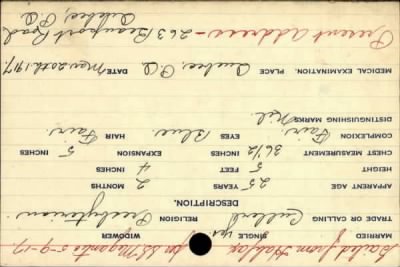 Sailed from Halifax
per SS. Megantic 5-9-17
MARRIED SINGLE yes. WIDOWER
TRADE OR CALLING RELIGION Presbyterian
DESCRIPTION.
APPARENT AGE 25 YEARS 2 MONTHS
HEIGHT 5 FEET 4 INCHES
CHEST MEASUREMENT 36 1/2 INCHES EXPANSION 5 INCHES
COMPLEXION Fair. EYES Blue. HAIR Fair
DISTINGUISHING MARKS Nil.
MEDICAL EXAMINATION. PLACE Quebec, P.Q. DATE Mar 20th. 1917.
Present address - 263 Beauport Road
Quebec, P.Q.